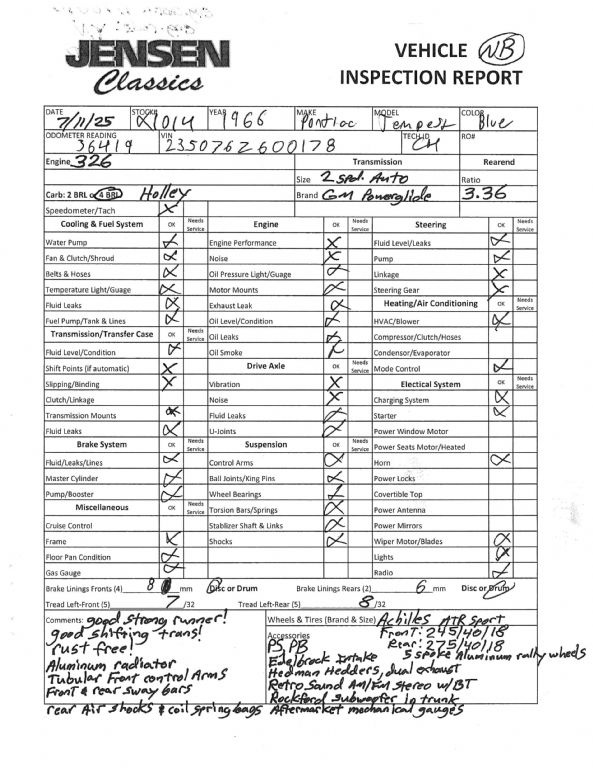 JENSEN
Classics
VEHICLE NB
INSPECTION REPORT
DATE 7/11/25 STOCK# 1014 YEAR 1966 MAKE Pontiac MODEL Tempest COLOR Blue
ODOMETER READING 36419 VIN 235076Z600178 TECH ID CH RO#
Engine 326 Transmission Rearend
Size 2 Spd. Auto Ratio
Carb: 2 BRL or 4 BRL Holley Brand GM Powerglide 3.36
Speedometer/Tach X
Cooling & Fuel System OK Needs Service Engine OK Needs Service Steering OK Needs Service
Water Pump X Engine Performance X Fluid Level/Leaks X
Fan & Clutch/Shroud X Noise X Pump X
Belts & Hoses X Oil Pressure Light/Guage X Linkage X
Temperature Light/Guage X Motor Mounts X Steering Gear X
Fluid Leaks X Exhaust Leak X Heating/Air Conditioning OK Needs Service
Fuel Pump/Tank & Lines X Oil Level/Condition X HVAC/Blower X
Transmission/Transfer Case OK Needs Service Oil Leaks X Compressor/Clutch/Hoses
Fluid Level/Condition X Oil Smoke X Condensor/Evaporator
Shift Points (if automatic) X Drive Axle OK Needs Service Mode Control X
Slipping/Binding X Vibration X Electical System OK Needs Service
Clutch/Linkage Noise X Charging System X
Transmission Mounts X Fluid Leaks X Starter X
Fluid Leaks X U-Joints X Power Window Motor
Brake System OK Needs Service Suspension OK Needs Service Power Seats Motor/Heated
Fluid/Leaks/Lines X Control Arms X Horn X
Master Cylinder X Ball Joints/King Pins X Power Locks
Pump/Booster X Wheel Bearings X Covertible Top
Miscellaneous OK Needs Service Torsion Bars/Springs X Power Antenna
Cruise Control Stablizer Shaft & Links X Power Mirrors
Frame X Shocks X Wiper Motor/Blades X
Floor Pan Condition X Lights X
Gas Gauge X Radio X
Brake Linings Fronts (4) 8 mm Disc or Drum Brake Linings Rears (2) 6 mm Disc or Drum
Tread Left-Front (5) 7 /32 Tread Left-Rear (5) 8 /32
Comments: good strong runner!
good shifting trans!
rust free!
Aluminum radiator
Tubular Front control Arms
Front & rear sway bars
rear Air shocks & coil spring bags
Wheels & Tires (Brand & Size) Achilles ATR Sport
Front: 245/40/18
Rear: 275/40/18
5 spoke Aluminum rally wheels
Accessories
PS, PB
Edelbrock Intake
Hedman Hedders, dual exhaust
RetroSound AM/FM Stereo w/BT
Rockford subwoofer in trunk
Aftermarket mechanical gauges